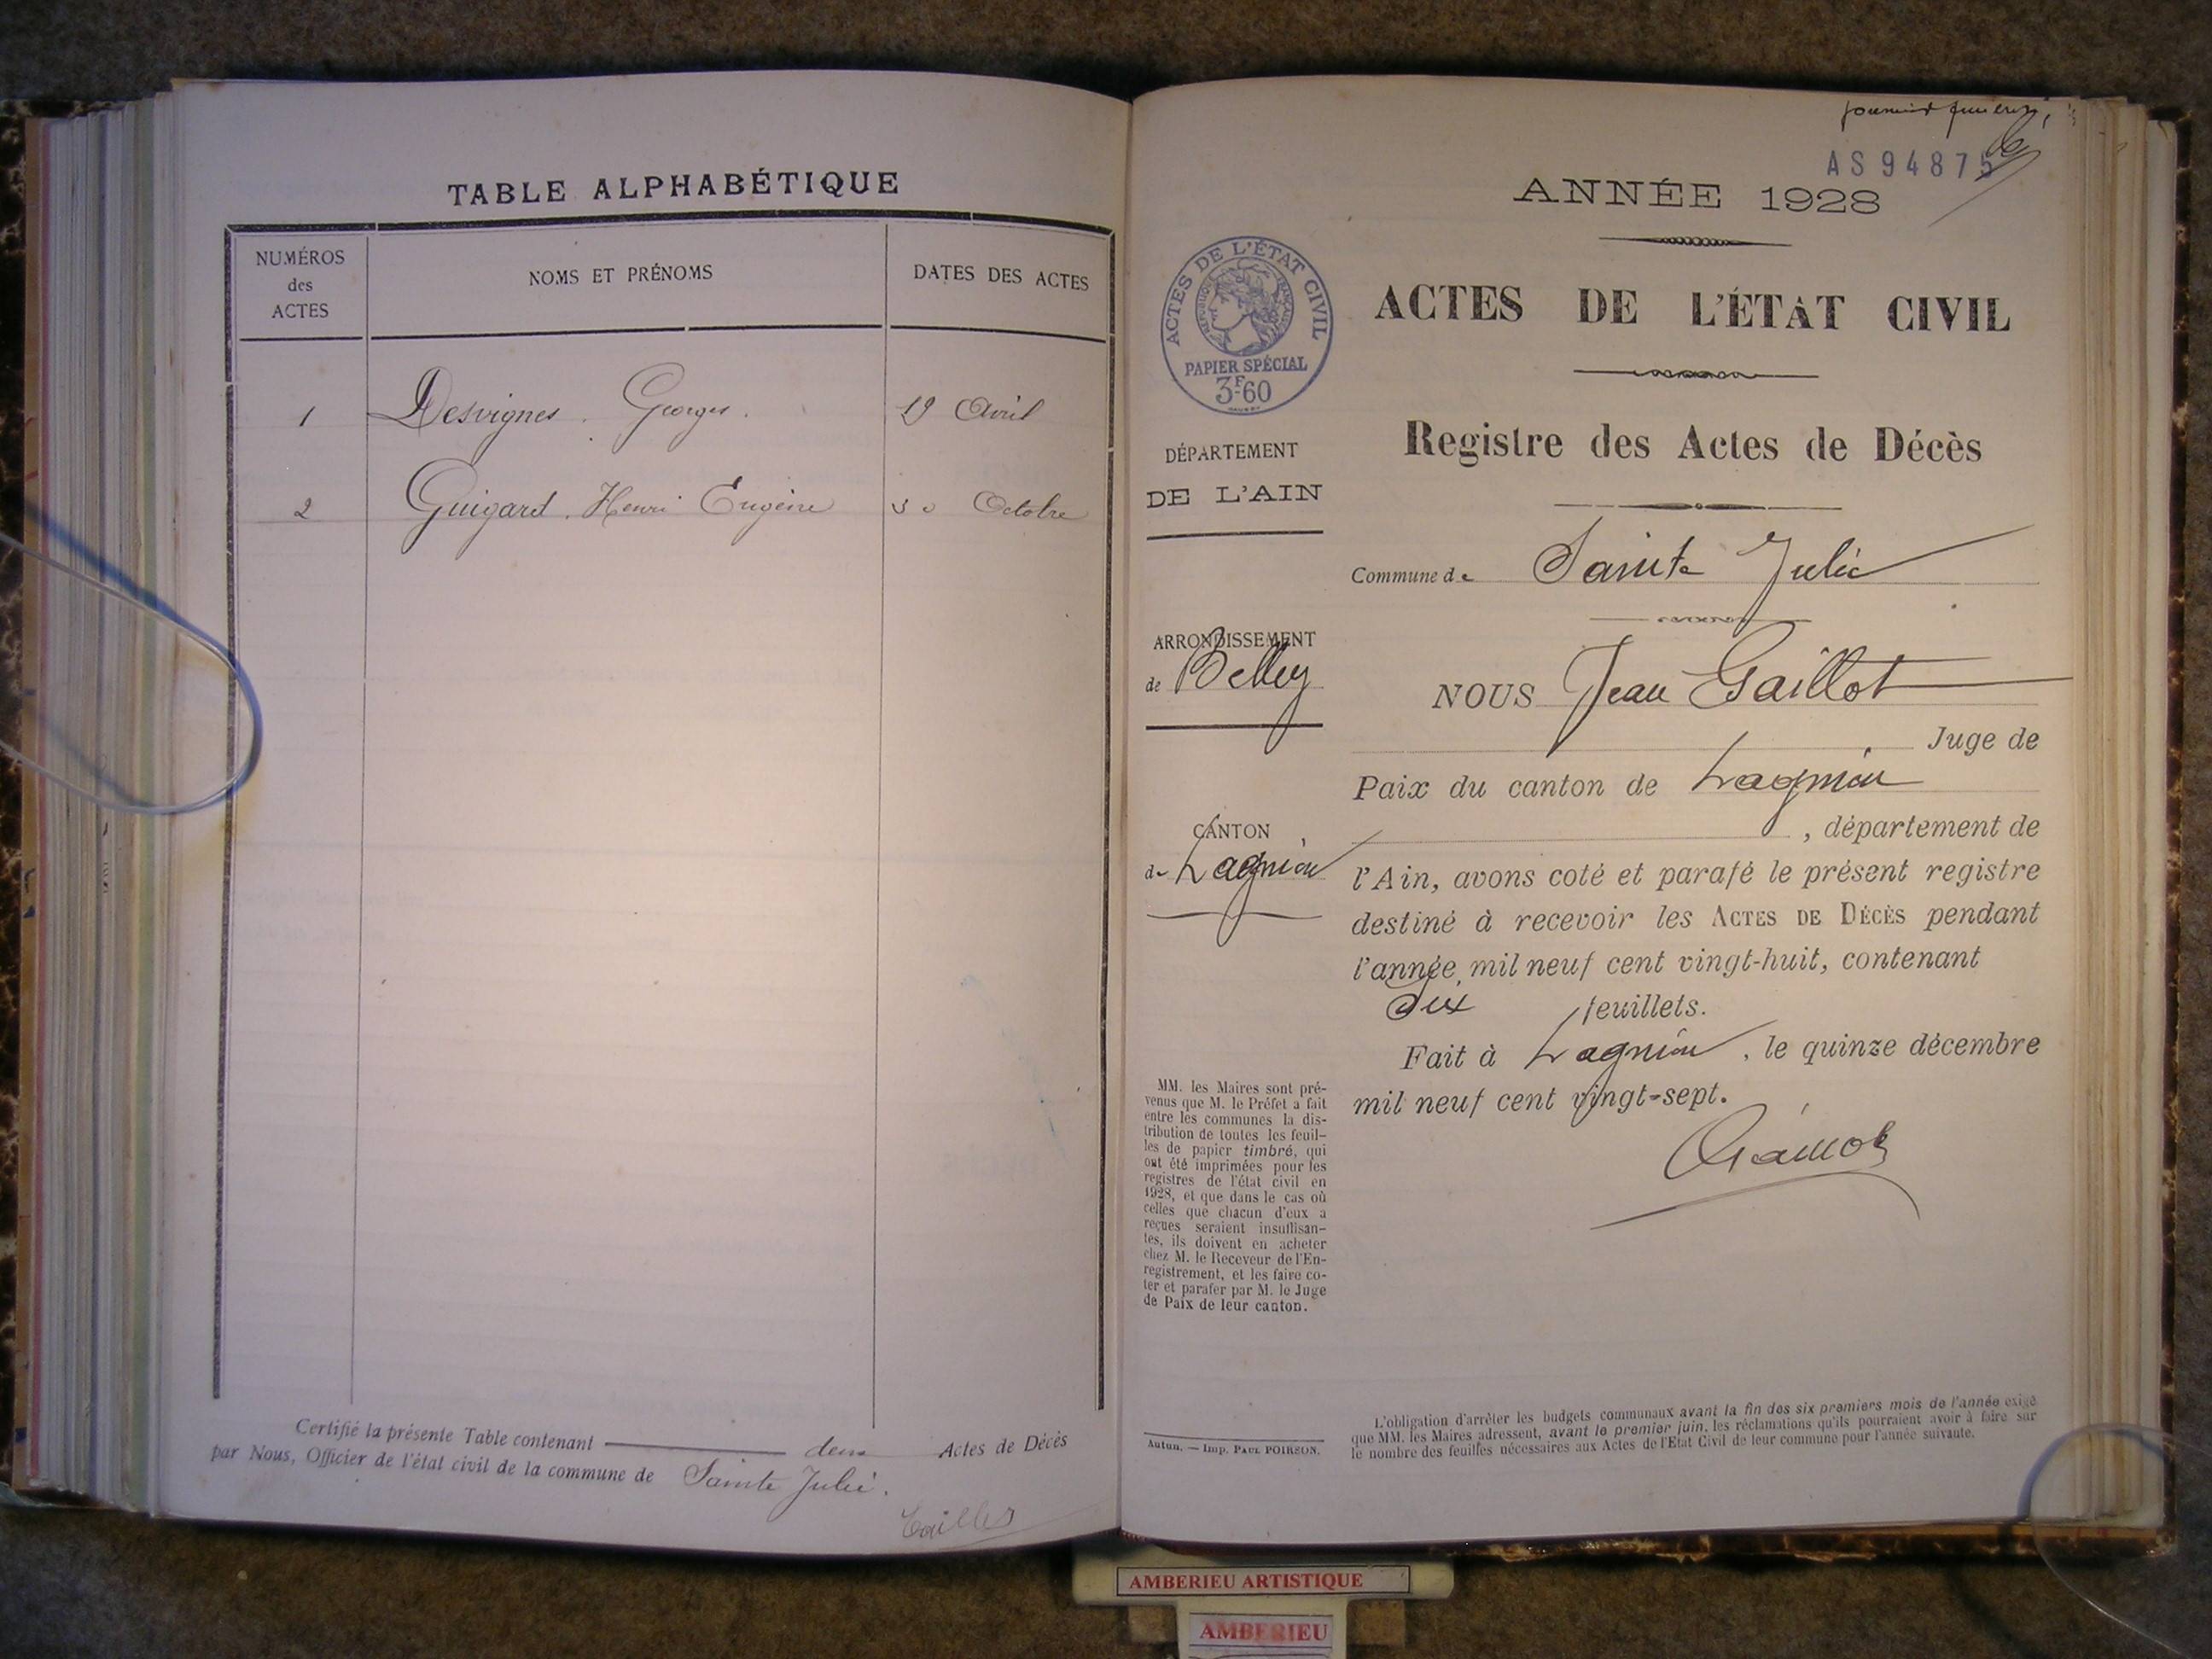 TABLE ALPHABÉTIQUE
NUMÉROS
des
ACTES
NOMS ET PRÉNOMS
DATES DES ACTES
1 Desvignes Georges. 19 Avril
2 Guigard. Henri Eugène 30 Octobre
Certifié la présente Table contenant deux Actes de Décès
par Nous, Officier de l'état civil de la commune de Sainte Julie.
AS94875
ANNÉE 1928
ACTES DE L'ÉTAT CIVIL
RÉPUBLIQUE FRANÇAISE
PAPIER SPÉCIAL
3F.60
DÉPARTEMENT
DE L'AIN
ARRONDISSEMENT
de Belley
CANTON
de Lagnieu
MM. les Maires sont pré-
venus que M. le Préfet a fait
entre les communes la dis-
tribution de toutes les feuil-
les de papier timbré, qui
ont été imprimées pour les
registres de l'état civil en
1928, et que dans le cas où
celles que chacun d'eux a
reçues seraient insuffisan-
tes, ils doivent en acheter
chez M. le Receveur de l'En-
registrement, et les faire co-
ter et parafer par M. le Juge
de Paix de leur canton.
Autun. — Imp. PAUL POIRSON.
ACTES DE L'ÉTAT CIVIL
Registre des Actes de Décès
Commune de Sainte Julie
NOUS Jean Gaillot
Juge de
Paix du canton de Lagnieu
, département de
l'Ain, avons coté et parafé le présent registre
destiné à recevoir les ACTES DE DÉCÈS pendant
l'année mil neuf cent vingt-huit, contenant
Six feuillets.
Fait à Lagnieu, le quinze décembre
mil neuf cent vingt-sept.
L'obligation d'arrêter les budgets communaux avant la fin des six premiers mois de l'année exige
que MM. les Maires adressent, avant le premier juin, les réclamations qu'ils pourraient avoir à faire sur
le nombre des feuilles nécessaires aux Actes de l'Etat Civil de leur commune pour l'année suivante.
AMBERIEU ARTISTIQUE
AMBERIEU